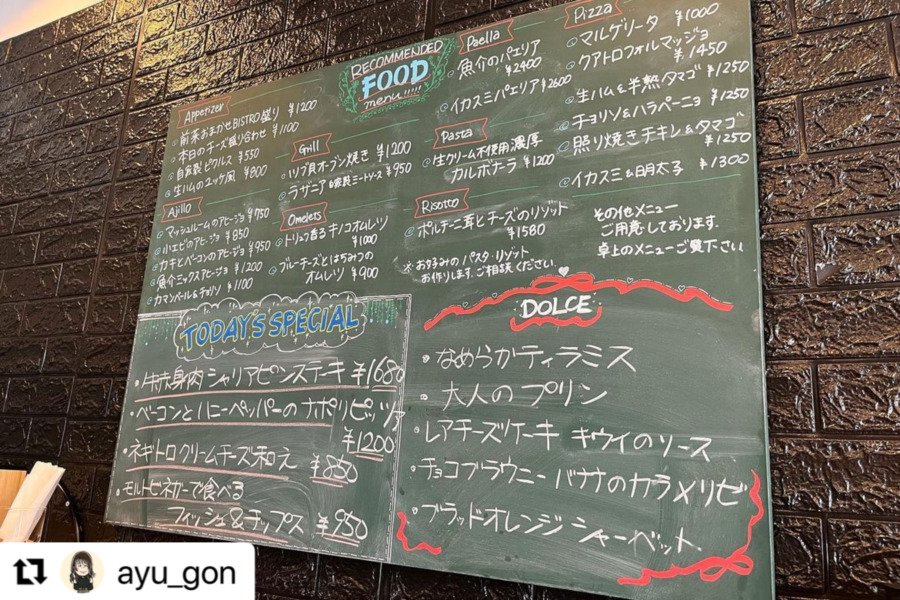 RECOMMENDED
FOOD
menu!!!!!
Appetizer
前菜おまかせBISTRO盛り ¥1200
本日のチーズ盛り合わせ ¥1100
自家製ピクルス ¥550
生ハムのユッケ風 ¥800
Ajillo
マッシュルームのアヒージョ ¥750
小エビのアヒージョ ¥850
カキとベーコンのアヒージョ ¥950
魚介ミックスアヒージョ ¥1200
カマンベール&チョリソ ¥1100
Grill
ツブ貝オーブン焼き ¥1200
ラザニア自家製ミートソース ¥950
Omelets
トリュフ香るキノコオムレツ
¥1000
ブルーチーズとはちみつの
オムレツ ¥900
Paella
魚介のパエリア
¥2400
イカスミパエリア ¥2600
Pasta
生クリーム不使用濃厚
カルボナーラ ¥1200
Risotto
ポルチーニ茸とチーズのリゾット
¥1580
※お好みのパスタ・リゾット
お作りします。ご相談ください。
Pizza
マルゲリータ ¥1000
クアトロフォルマッジョ
¥1450
生ハム&半熟タマゴ ¥1250
チョリソ&ハラペーニョ ¥1250
照り焼きチキン&タマゴ
¥1250
イカスミ&明太子 ¥1300
その他メニュー
ご用意しております。
卓上のメニューご覧下さい
TODAY'S SPECIAL
・牛赤身肉シャリアピンステーキ ¥1680
・ベーコンとハニーペッパーのナポリピッツァ
¥1200
・ネギトロクリームチーズ和え ¥850
・モルトビネガーで食べる
フィッシュ&チップス ¥950
DOLCE
・なめらかティラミス
・大人のプリン
・レアチーズケーキ キウイのソース
・チョコブラウニー バナナのカラメリゼ
・ブラッドオレンジシャーベット
ayu_gon